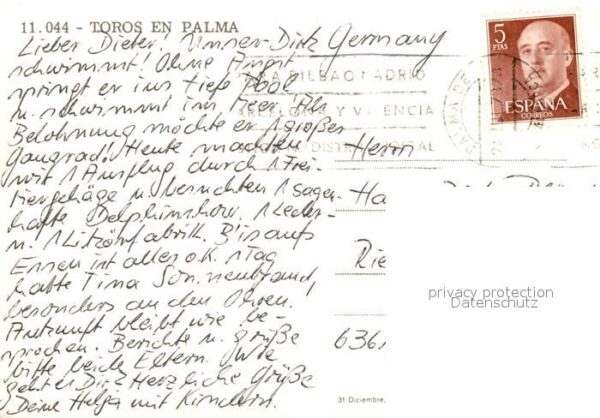 11.044 - TOROS EN PALMA
Lieber Dieter! Unser Dirk Germany
schwimmt! Ohne Angst
springt er ins tiefe Pool
u. schwimmt im Meer. Als
Belohnung möchte er 1 großes
Gangrad! Heute machten
wir 1 Ausflug durch 1 Frei-
tiergehäge u. besuchten 1 sagen-
hafte Delphinshow. 1 Leder-
u. 1 Likörfabrik. Bis aufs
Essen ist alles o.k. 1 Tag
hatte Tina Sonnenbrand,
besonders an den Ohren.
Ankunft bleibt wie be-
sprochen. Berichte u. grüße
bitte beide Eltern. Wie
geht es Dir? Herzliche Grüße
Deine Helga mit Kindern.
5
PTAS
ESPAÑA
CORREOS
BILBAO MADRID
Y VALENCIA
PALMA DE
Herrn
Ha
Rie
636
privacy protection
Datenschutz
31 Diciembre,